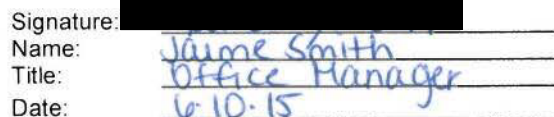 Signature:
Name: Jaime Smith
Title: Office Manager
Date: 6.10.15